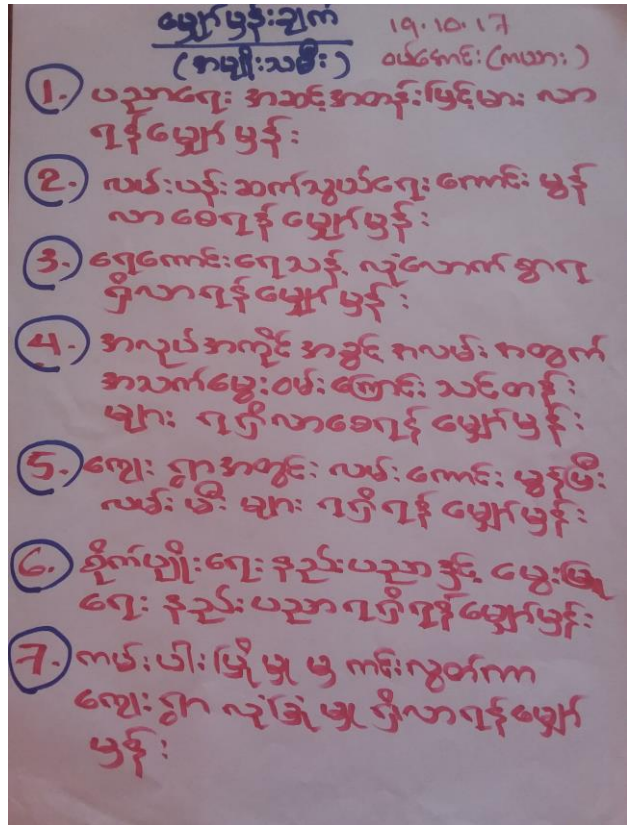 မျှော်မှန်းချက် 19.10.17
(အမျိုးသမီး) ဝယ်ကောင်း (ကယား)
1. ပညာရေး အဆင့်အတန်းမြင့်မား လာ
ရန်မျှော်မှန်း
2. လမ်းပန်းဆက်သွယ်ရေး ကောင်း မွန်
လာစေရန် မျှော်မှန်း
3. ရေကောင်းရေသန့် လုံလောက်စွာရ
ရှိလာရန် မျှော်မှန်း
4. အလုပ်အကိုင် အခွင့် အလမ်း အတွက်
အသက်မွေးဝမ်းကြောင်း သင်တန်း
များ ရရှိလာစေရန် မျှော်မှန်း
5. ကျေး ရွာအတွင်း လမ်းကောင်း မွန်ပြီး
လမ်း မီး များ ရရှိရန် မျှော်မှန်း
6. စိုက်ပျိုးရေး နည်းပညာ နှင့် မွေးမြူ
ရေး နည်းပညာ ရရှိရန် မျှော်မှန်း
7. ကမ်းပါးပြိုမှု မှ ကင်းလွတ်ကာ
ကျေးရွာ လုံခြုံမှု ရှိလာရန် မျှော်
မှန်း